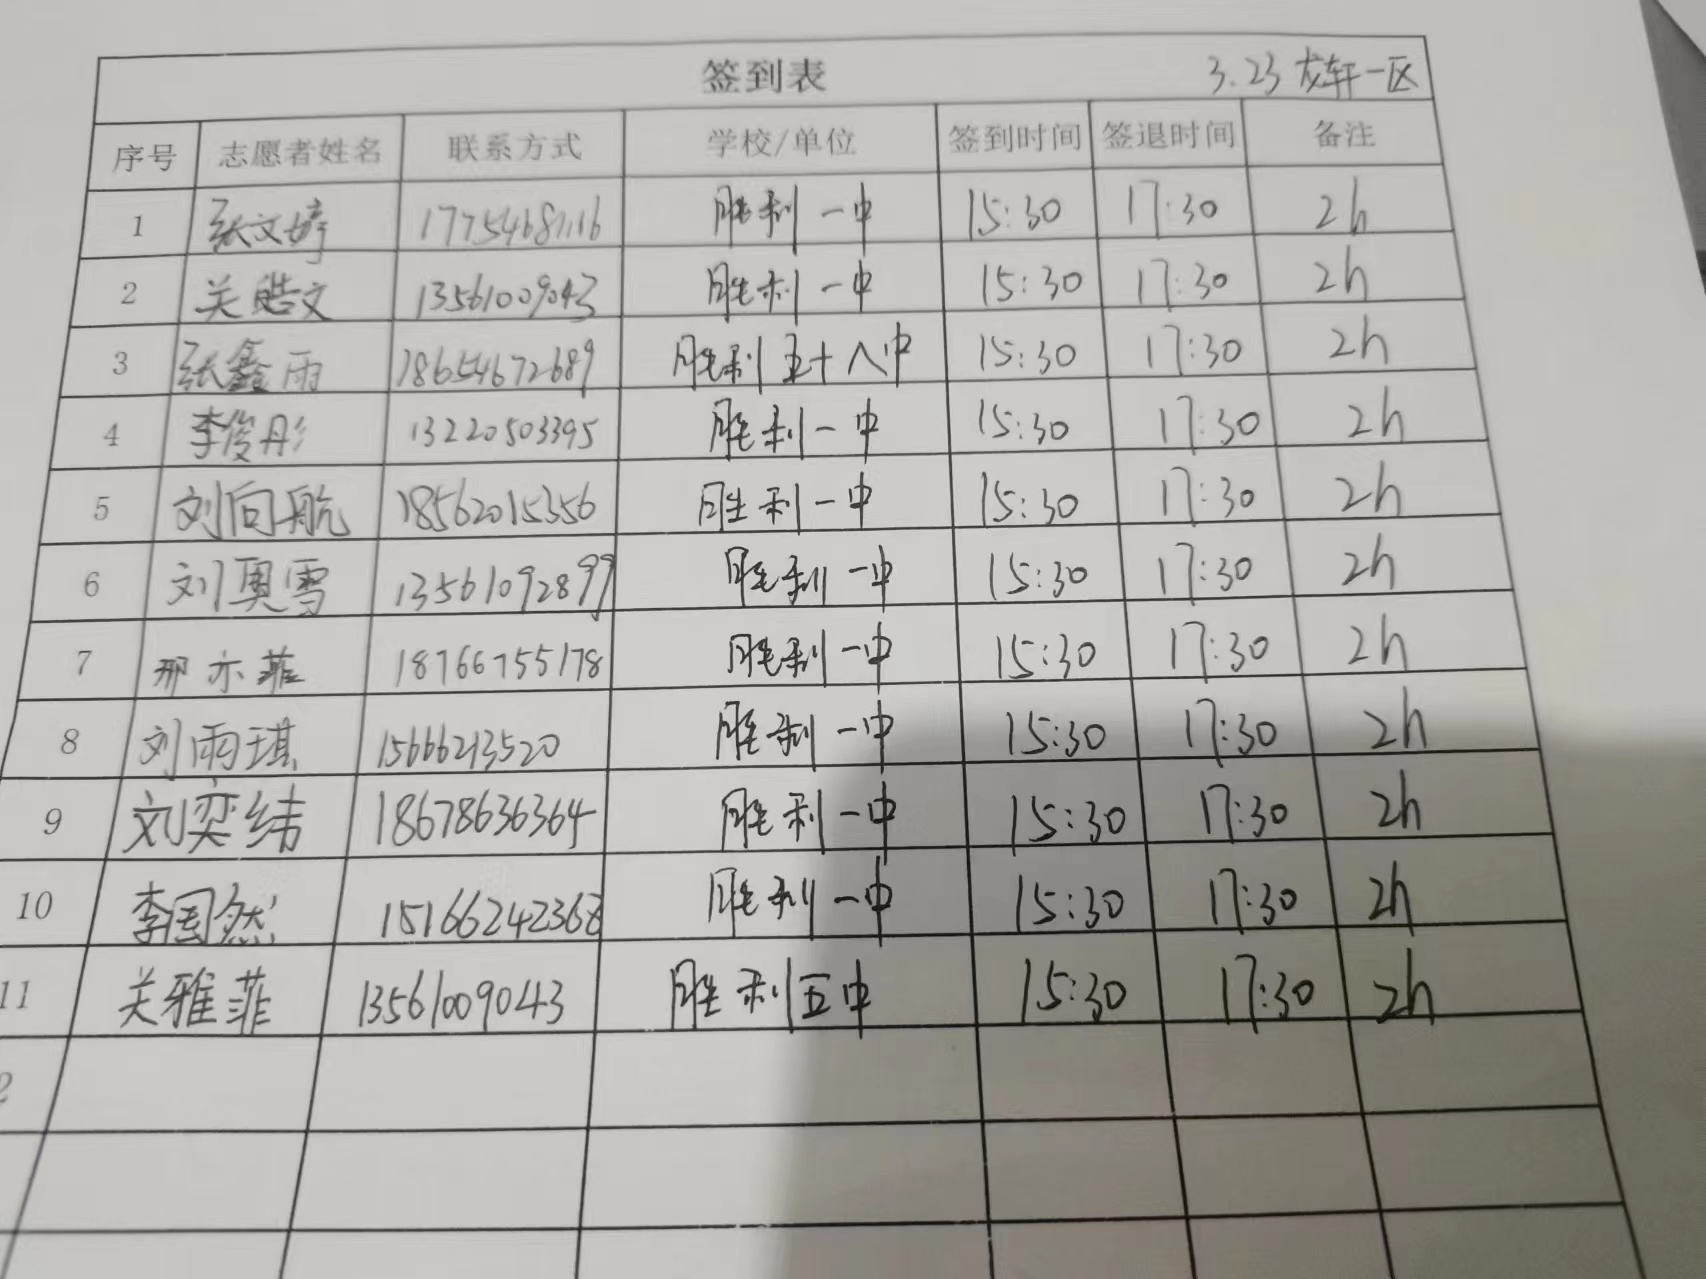 签到表 3.23 龙轩一区
序号 志愿者姓名 联系方式 学校/单位 签到时间 签退时间 备注
1 张文婷 胜利一中 15:30 17:30 2h
2 关皓文 13561009043 胜利一中 15:30 17:30 2h
3 张鑫雨 18654672689 胜利五十八中 15:30 17:30 2h
4 李俊彤 13220503395 胜利一中 15:30 17:30 2h
5 刘向航 18562015356 胜利一中 15:30 17:30 2h
6 刘奥雪 13561092899 胜利一中 15:30 17:30 2h
7 邢亦菲 18766755178 胜利一中 15:30 17:30 2h
8 刘雨琪 15666213520 胜利一中 15:30 17:30 2h
9 刘奕纬 18678636364 胜利一中 15:30 17:30 2h
10 李国然 15166242368 胜利一中 15:30 17:30 2h
11 关雅菲 13561009043 胜利五中 15:30 17:30 2h
2